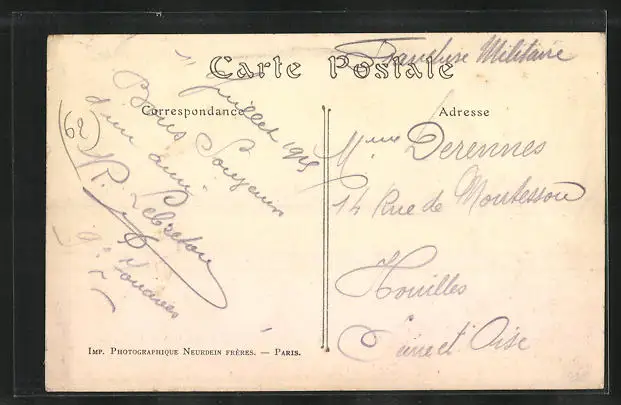 Carte Postale
Franchise Militaire
Correspondance
Adresse
11 Juillet 1915
Bons Souvenirs
d'un ami
R. Lebreton
(62)
Mme Derennes
14 Rue de Montesson
Houilles
Seine et Oise
Imp. Photographique Neurdein frères. — Paris.